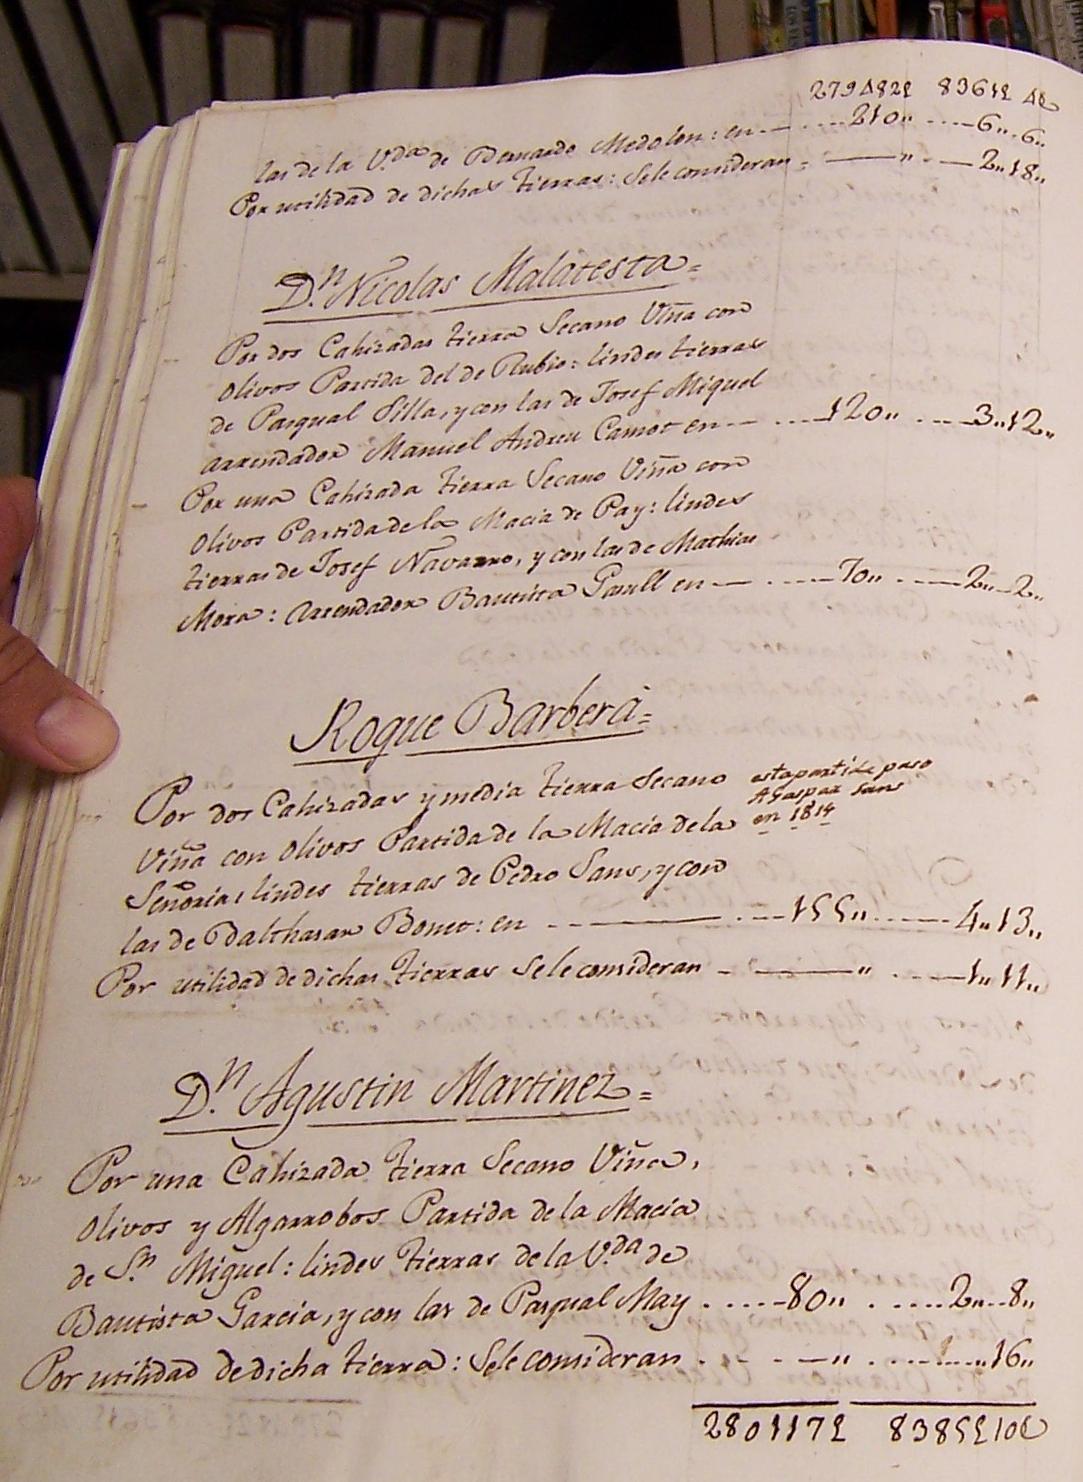 279482£ 8361£ 4$
las de la V.da de Bernardo Medolon: en 210,, 6,,6,,
Por utilidad de dichas tierras: Sele consideran = ,, 2,,18,,
D.n Nicolas Malatesta =
Por dos Cahizadas tierra Secano Viña con
olivos Partida del de Rubio: lindes tierras
de Pasqual Silla, y con las de Josef Miquel
arrendador Manuel Andreu Camot en 120,, 3,,12,,
Por una Cahizada tierra Secano Viña con
olivos Partida de la Macia de Pay: lindes
tierras de Josef Navarro, y con las de Mathias
Mora: arrendador Bautista Gaull en 70,, 2,,2,,
Roque Barberá =
Por dos Cahizadas y media tierra Secano
esta partida paso
A Gaspar Sans
en 1814
Viña con olivos Partida de la Macia de la
Señoria: lindes tierras de Pedro Sans, y con
las de Balthasar Bonet: en 155,, 4,,13,,
Por utilidad de dichas tierras Sele consideran ,, 1,,11,,
D.n Agustin Martinez =
Por una Cahizada tierra Secano Viña,
olivos y Algarrobos Partida de la Macia
de S.n Miguel: lindes tierras de la V.da de
Bautista Garcia, y con las de Pasqual May 80,, 2,,8,,
Por utilidad de dicha tierra: Sele consideran ,, ,,16,,
280117£ 8385£10$